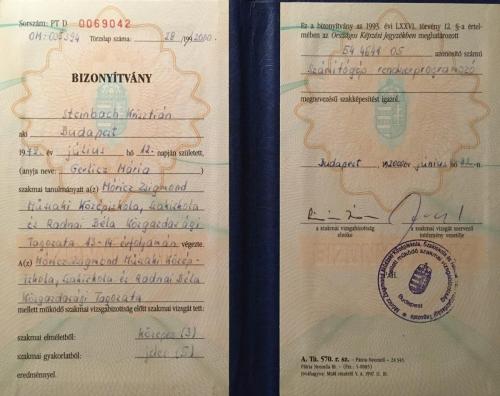 Sorszám: PT D 0069042
OM: 035394
Törzslap száma: 28 /199 2000.
BIZONYÍTVÁNY
Steinbach Krisztián
aki Budapest
1972 év július hó 12. napján született,
(anyja neve: Gerlicz Mária
szakmai tanulmányait a(z) Móricz Zsigmond
Műszaki Középiskola, Szakiskola
és Radnai Béla Közgazdasági
Tagozata 13-14 évfolyamán végezte.
A(z) Móricz Zsigmond Műszaki Közép-
iskola, Szakiskola és Radnai Béla
Közgazdasági Tagozata
mellett működő szakmai vizsgabizottság előtt szakmai vizsgát tett:
szakmai elméletből: közepes (3)
szakmai gyakorlatból: jeles (5)
eredménnyel.
Ez a bizonyítvány az 1993. évi LXXVI. törvény 12. §-a értel-
mében az Országos Képzési Jegyzékben meghatározott
54 4641 05 azonosító számú
Számítógép rendszerprogramozó
megnevezésű szakképesítést igazol.
Budapest, 2000 év június hó n.
a szakmai vizsgabizottság
elnöke
a szakmai vizsgát szervező
intézmény vezetője
P.H.
Budapest
A. Tü. 570. r. sz. – Pátria Nyomdából
Pátria Nyomda Rt.